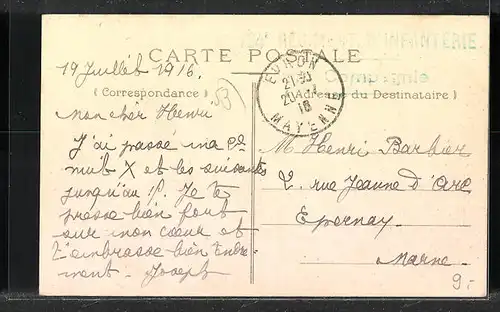 INFANTERIE
CARTE POSTALE
Compagnie
(Correspondance)
Adresse du Destinataire)
EVRON
20
16
MAYENNE
19 Juillet 1916.
53
mon chèr Henri
J'ai passé ma 1e
nuit X et les suivantes
jusqu'au
Je te
presse bien fort
sur mon cœur et
t'embrasse bien tendre-
ment - Joseph
M Henri Barbier
2, rue Jeanne d'Arc
Epernay
Marne
9.-